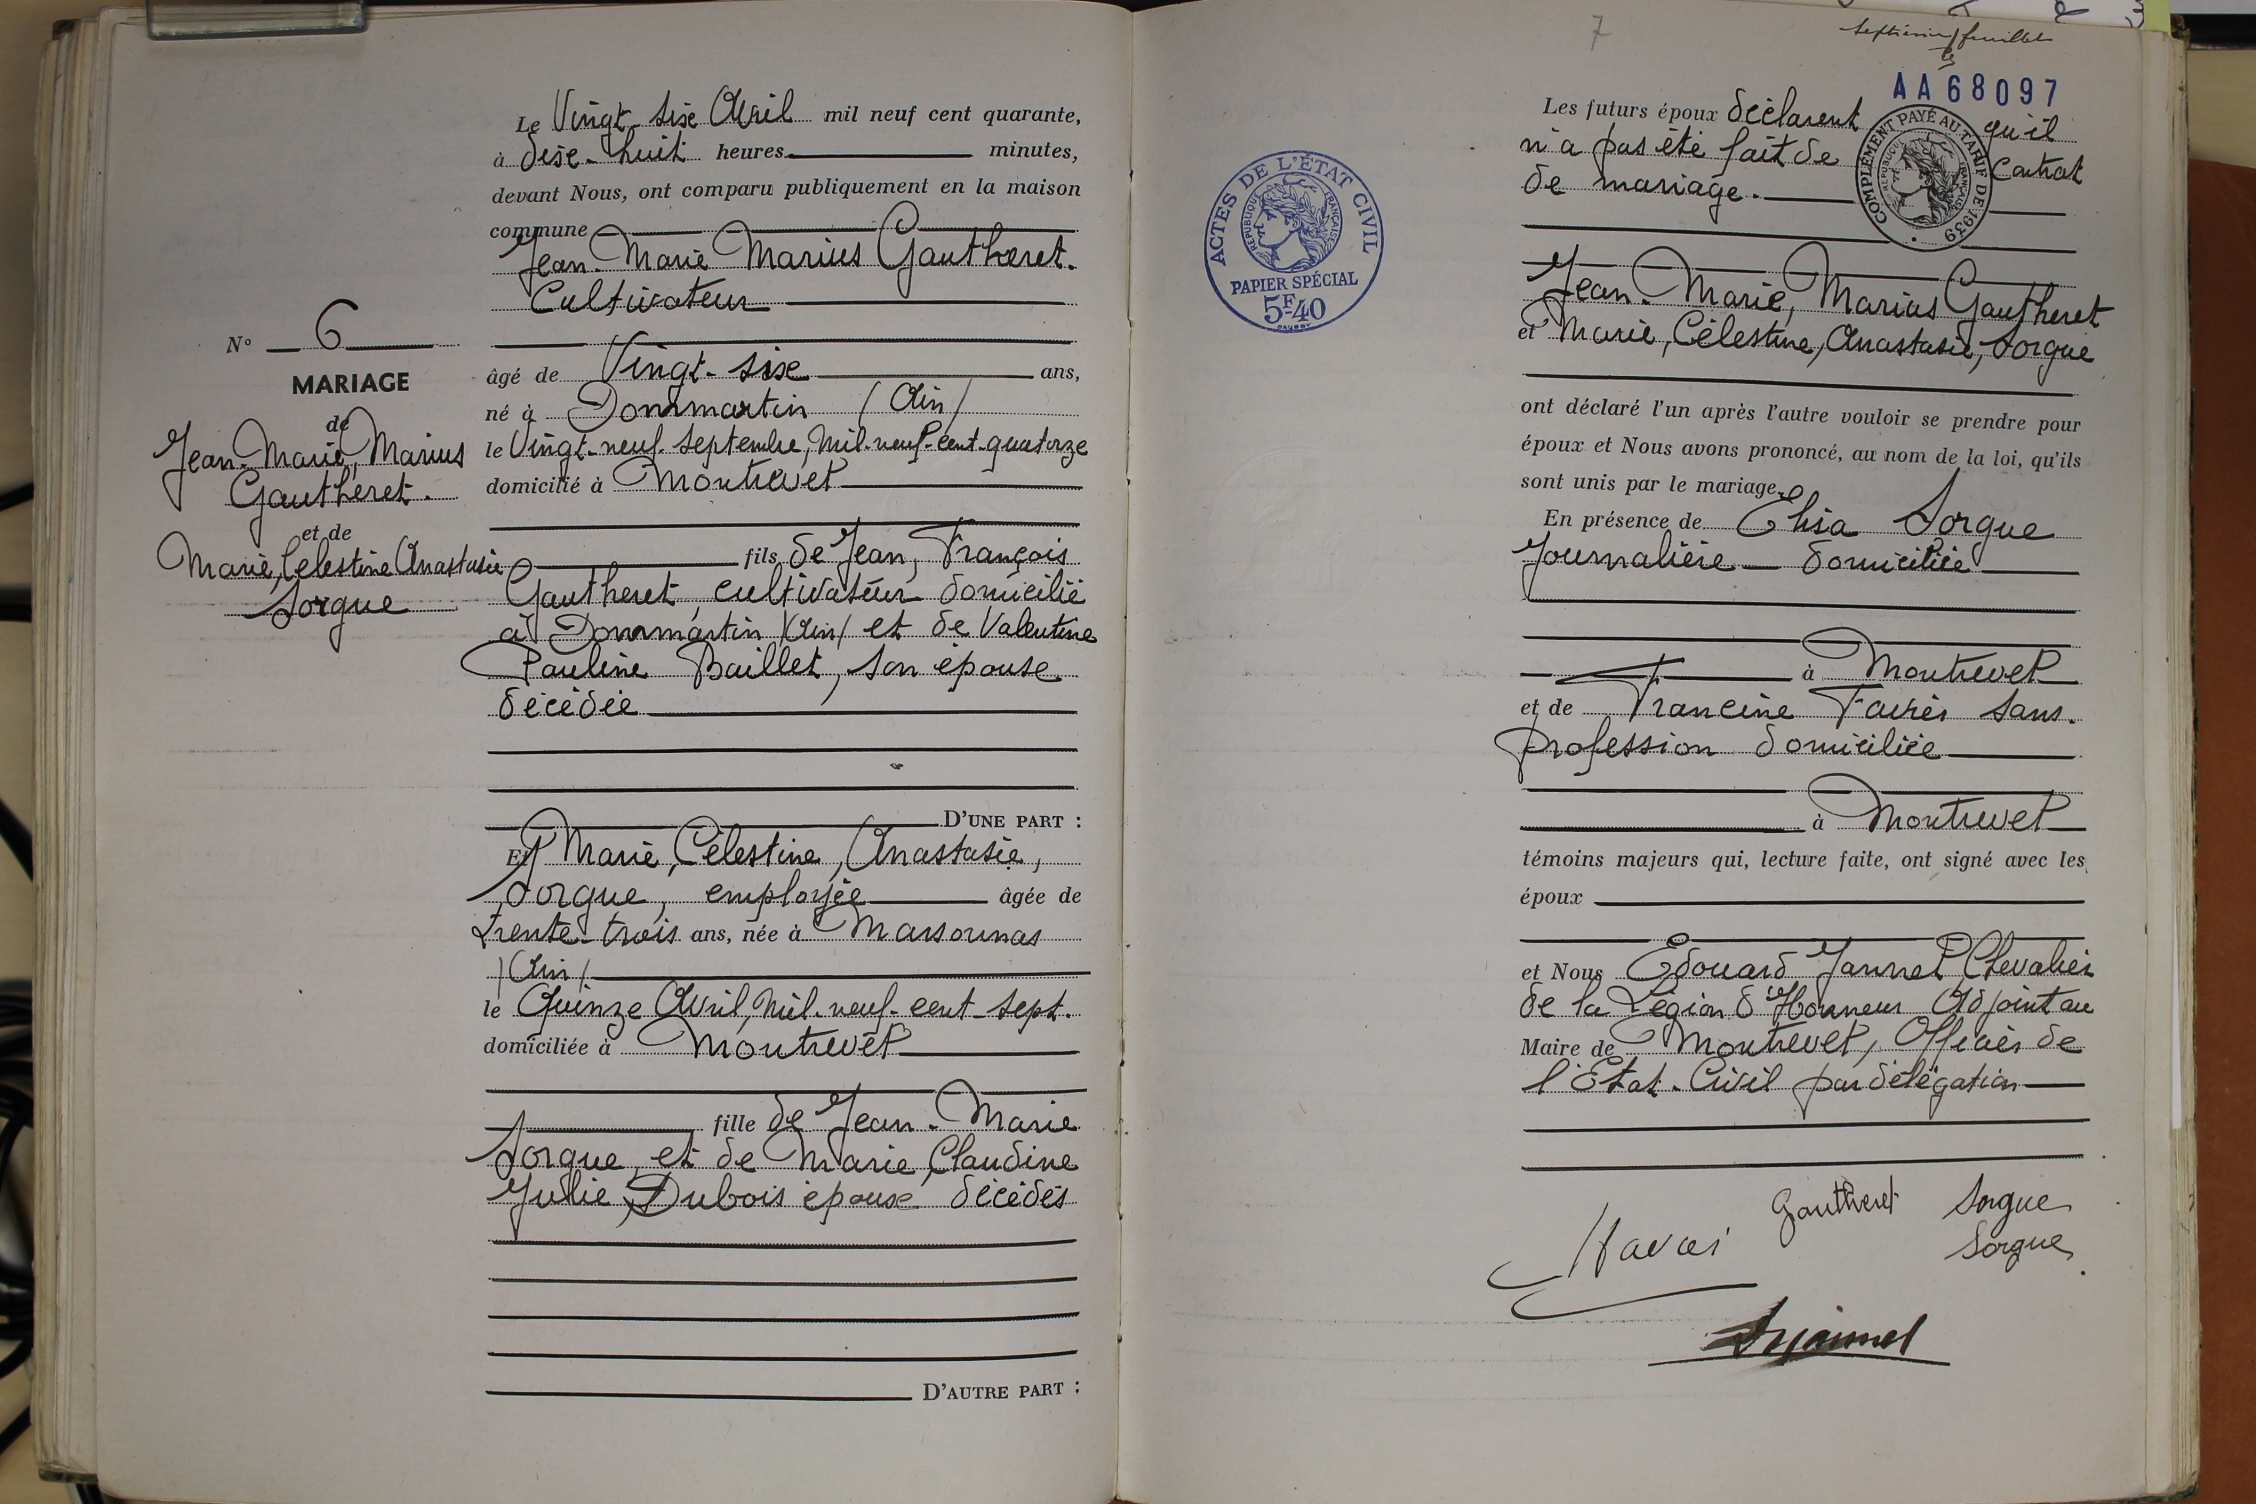 N° 6
MARIAGE
de
Jean-Marie, Marius
Gautheret.
et de
Marie, Célestine Anastasie
Sorgue
Le Vingt-six Avril mil neuf cent quarante,
à dix-huit heures minutes,
devant Nous, ont comparu publiquement en la maison
commune
Jean-Marie Marius Gautheret.
Cultivateur
âgé de Vingt-six ans,
né à Dommartin (Ain)
le Vingt-neuf septembre, mil-neuf-cent-quatorze
domicilié à Montrevel
fils de Jean, François
Gautheret, cultivateur domicilié
à Dommartin (Ain) et de Valentine
Pauline Baillet, son épouse
décédée
D'UNE PART :
Et Marie, Célestine, Anastasie,
Sorgue, employée âgée de
trente-trois ans, née à Marsonnas
(Ain)
le Quinze Avril, mil-neuf-cent-sept.
domiciliée à Montrevel
fille de Jean-Marie
Sorgue, et de Marie, Claudine
Julie, Dubois épouse décédés
D'AUTRE PART :
ACTES DE L'ÉTAT CIVIL
RÉPUBLIQUE FRANÇAISE
PAPIER SPÉCIAL
5F40
7
Septième feuillet
AA68097
COMPLÉMENT PAYÉ AU TARIF DE 1939
RÉPUBLIQUE FRANÇAISE
Les futurs époux déclarent qu'il
n'a pas été fait de Contrat
de mariage.
Jean-Marie, Marius Gautheret
et Marie, Célestine, Anastasie, Sorgue
ont déclaré l'un après l'autre vouloir se prendre pour
époux et Nous avons prononcé, au nom de la loi, qu'ils
sont unis par le mariage.
En présence de Elisa Sorgue
Journalière domiciliée
à Montrevel
et de Francine Favier sans
profession domiciliée
à Montrevel
témoins majeurs qui, lecture faite, ont signé avec les
époux
et Nous Edouard Jannel Chevalier
de la Légion d'Honneur Adjoint au
Maire de Montrevel, Officier de
l'Etat-Civil par délégation
Gautheret Sorgue
Favier Sorgue